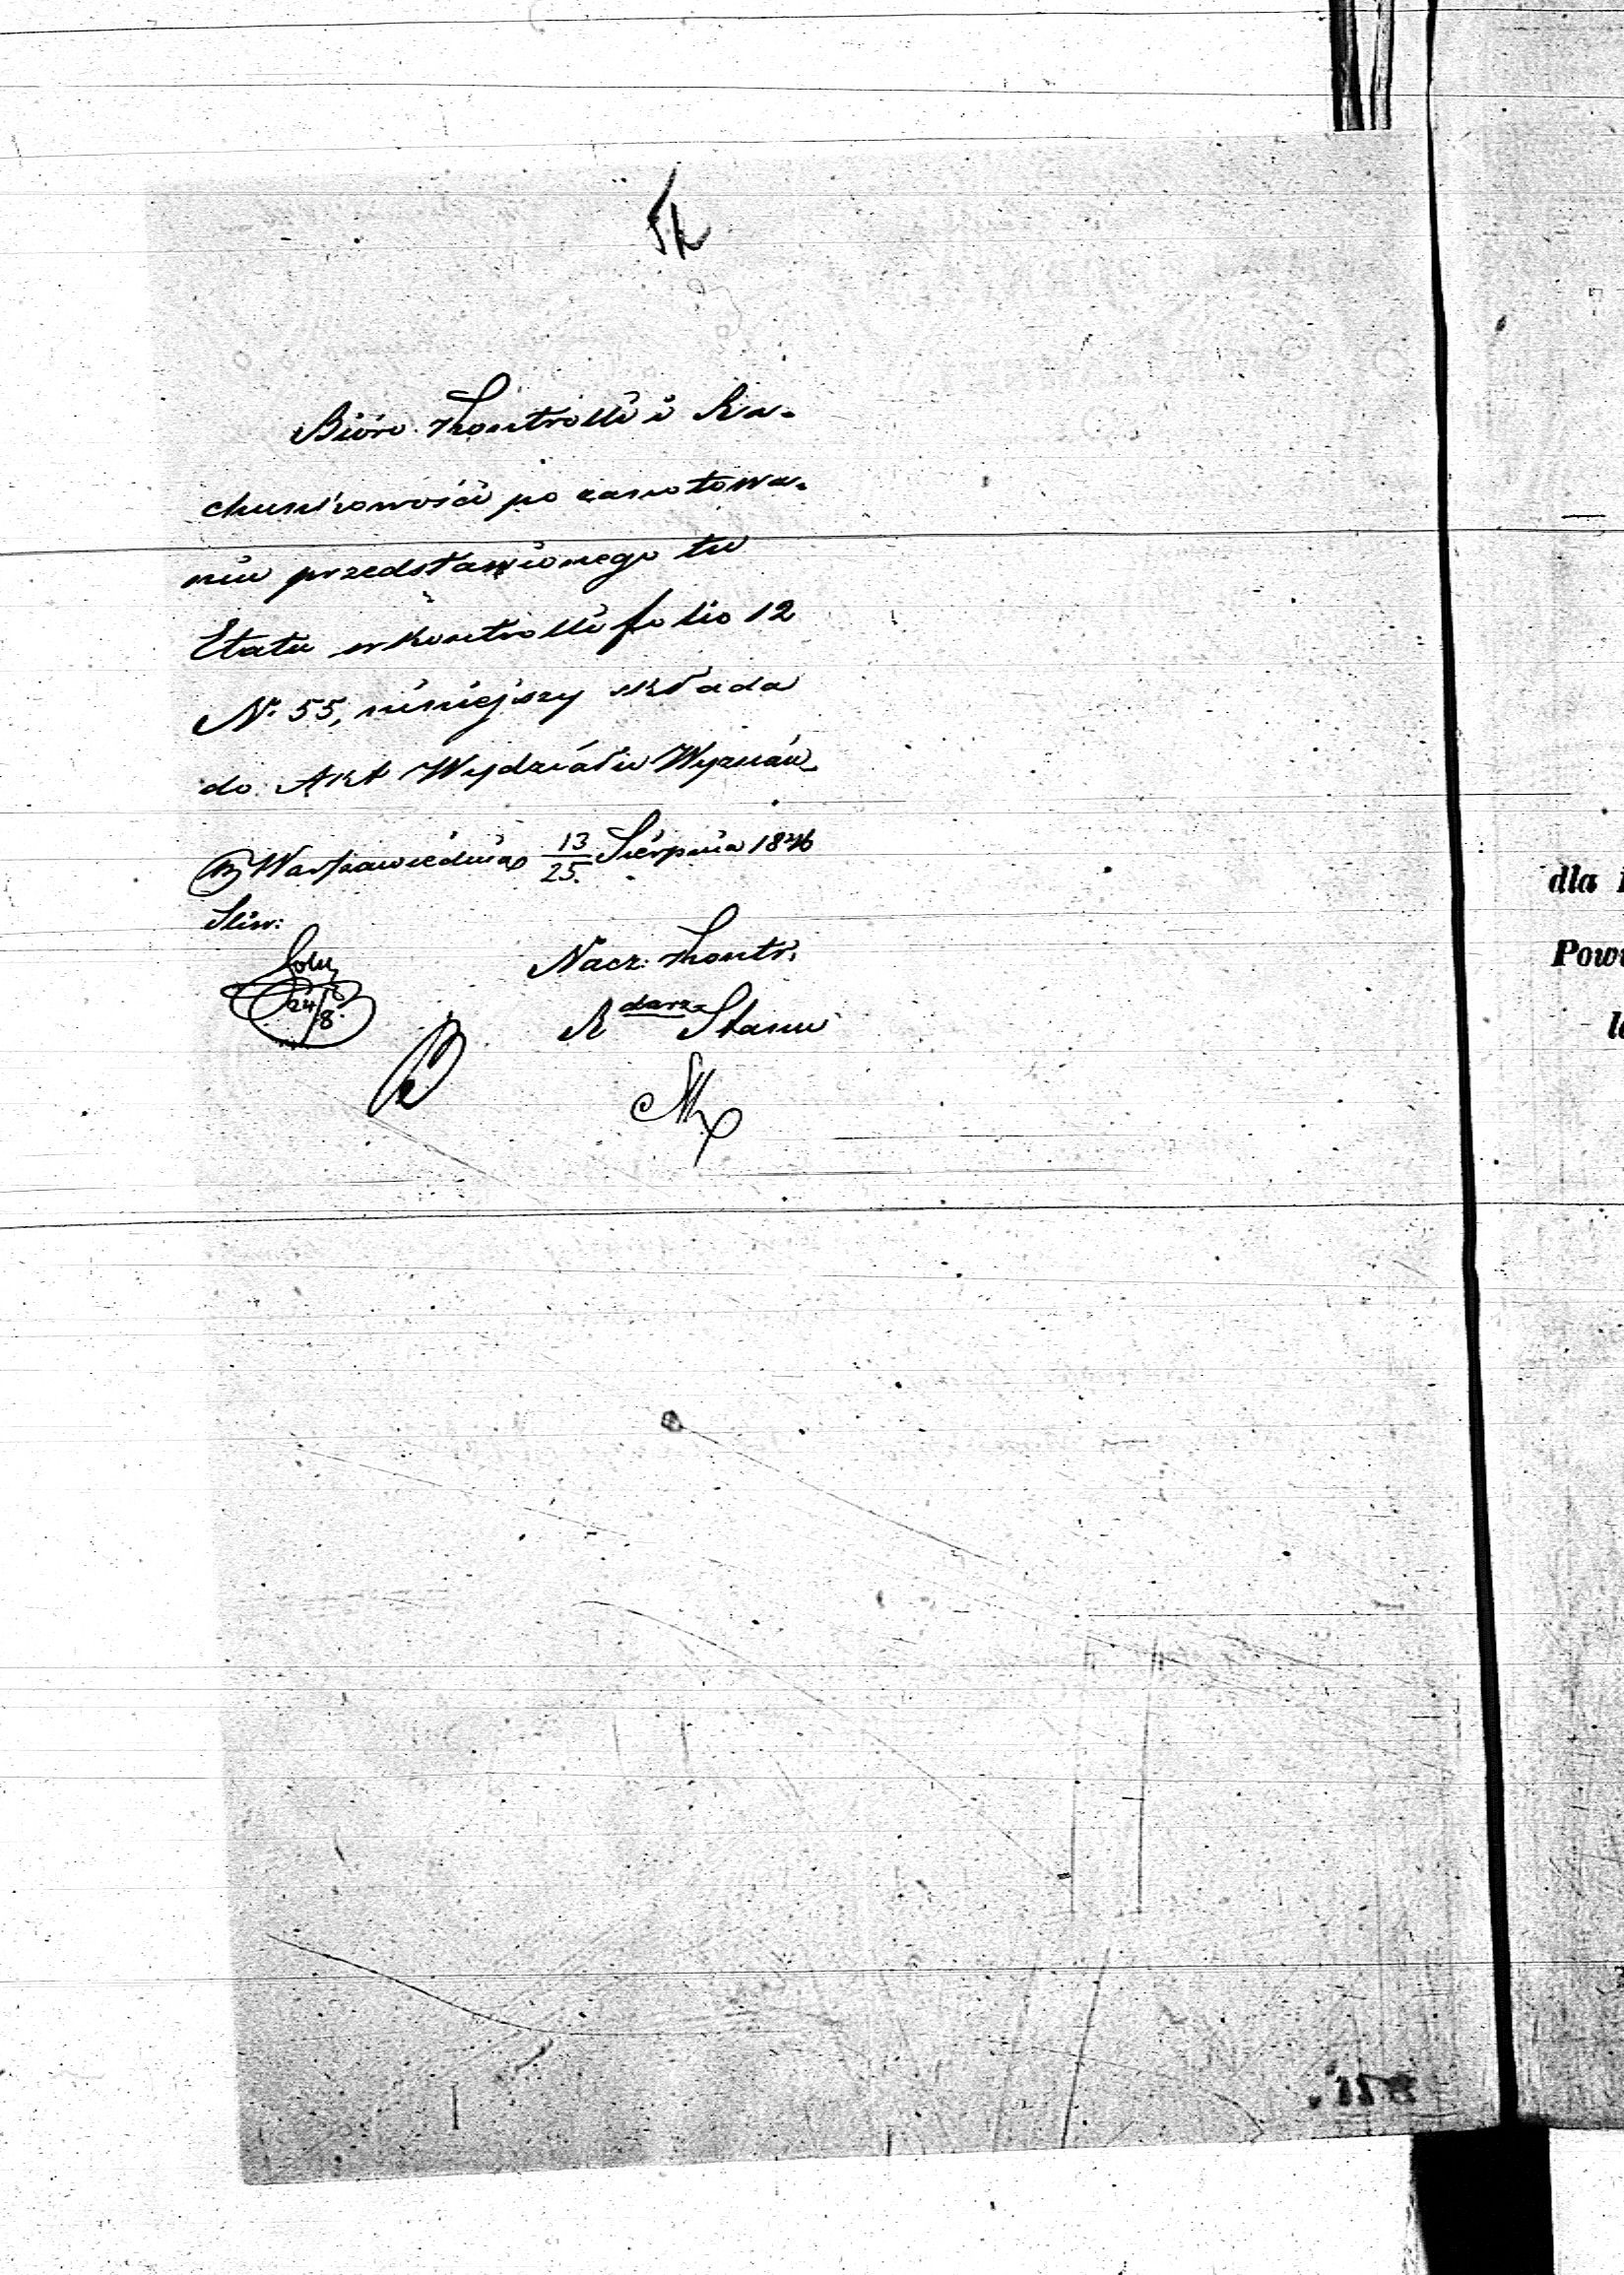 Bióro Kontrolli i Ra-
chunkowości po zanotowa-
niu przedstawionego tu
Etatu w kontrolli folio 12
No 55, niniejszy składa
do Akt Wydziału Wyznań
w Warszawie dnia 13/25 Sierpnia 1846
Nacz: Kontr:
Rdarz Stanu
24/8
dla
Pow